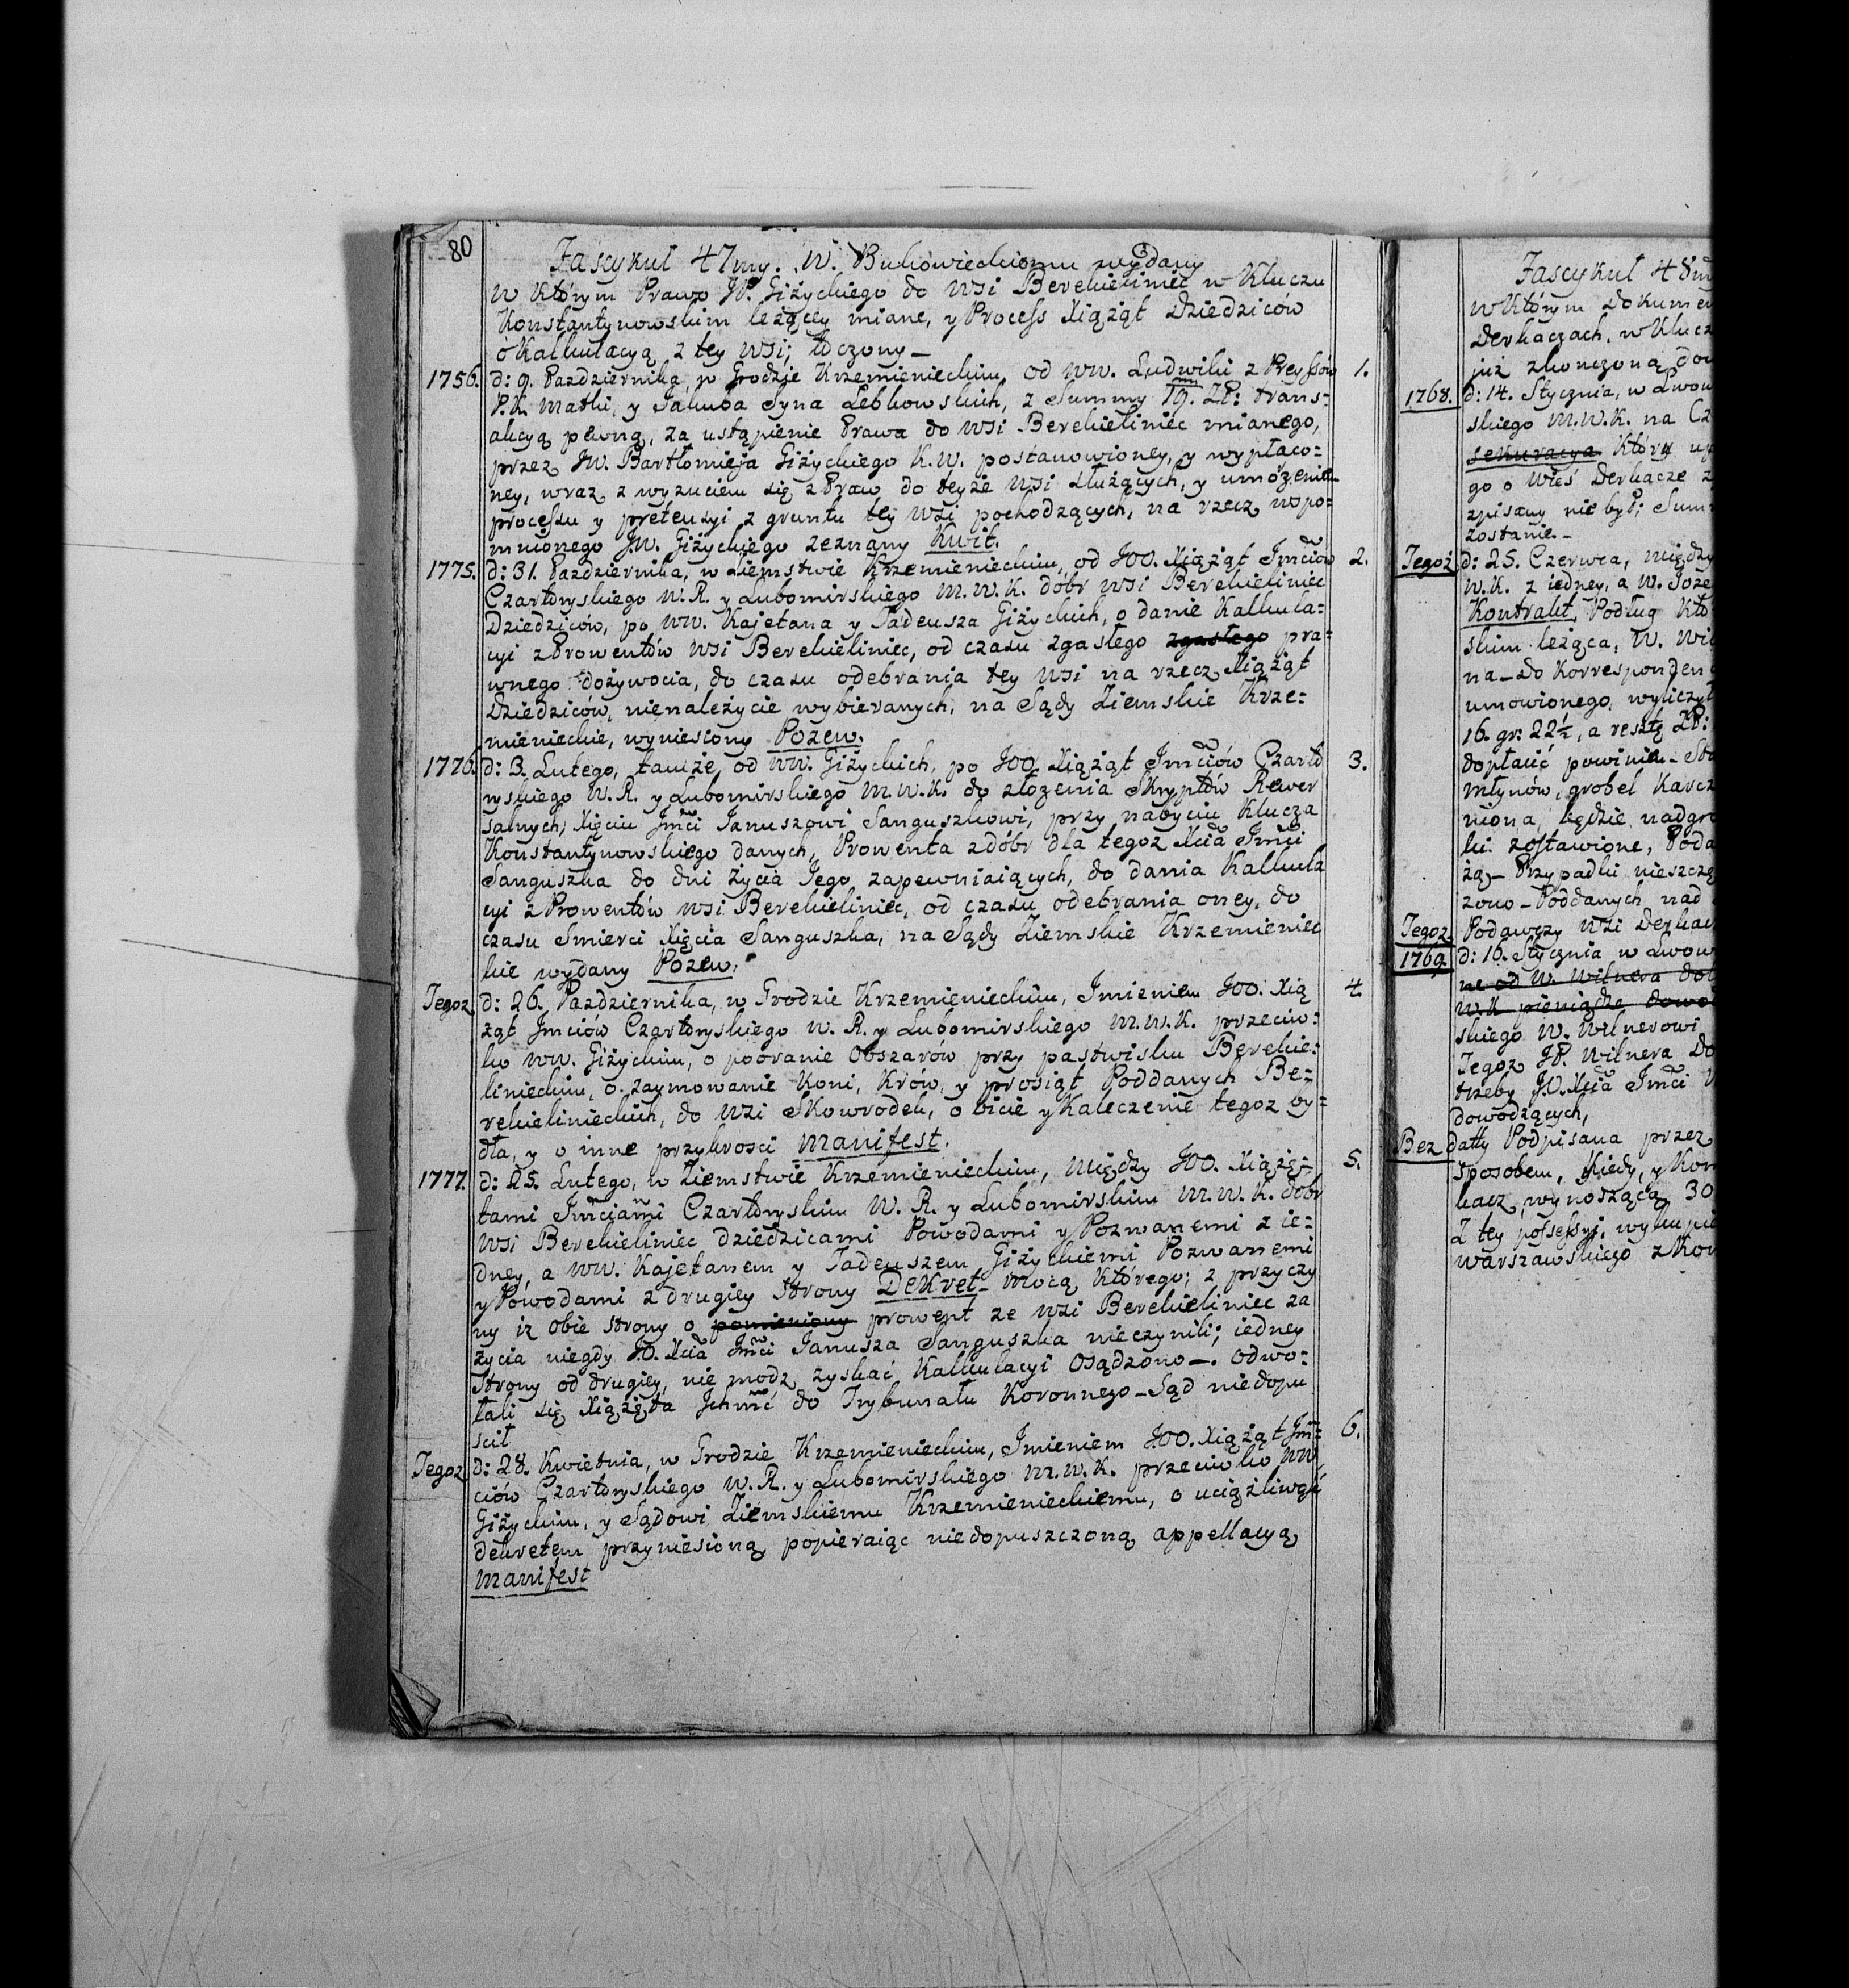 80
Fascykuł 47my. W. Bukowieckiemu wydany
w Którym Prawo JP. Giżyckiego do wsi Berekieliniec w Kluczu
Konstantynowskim leżącey miane, y Process Xiążąt Dziedziców
o Kalkulacyą z tey wsi; łączony_
1756. d: 9. Pazdziernika, w Grodzie Krzemienieckim, od WW. Ludwiki z Preyssów 1.
P.K. Matki, y Jakuba Syna Lebkowskich, z Summy 19. ZP: trans=
akcyą pewną, za ustąpienie Prawa do wsi Berekieliniec mianego,
przez JW. Bartłomieja Giżyckiego K.W. postanowioney, y wypłaco=
ney, wraz z wyzuciem się z Praw do teyże wsi służących, y umorzeniem
processu y pretensyi z gruntu tey wsi pochodzących, na rzecz wspo=
mnionego JW. Giżyckiego zeznany Kwit.
1775. d: 31. Pazdziernika, w Ziemstwie Krzemienieckim, od JOO. Xiążąt Jmciów 2.
Czartoryskiego W.R. y Lubomirskiego M.W.K. dóbr wsi Berekieliniec
Dziedziców, po WW. Kajetana y Tadeusza Giżyckich, o danie Kalkula=
cyi z Prowentów wsi Berekieliniec, od czasu zgasłego zgasłego pra=
wnego dożywocia, do czasu odebrania tey wsi na rzecz Xiążąt
Dziedziców, nienależycie wybieranych, na Sądy Ziemskie Krze=
mienieckie, wyniesiony Pozew.
1776. d: 3. Lutego, tamże, od WW. Giżyckich, po JOO. Xiążąt Jmciów Czarto 3.
ryskiego W.R. y Lubomirskiego M.W.K. do złożenia Skryptów Rewer
salnych, Xięciu Jmci Januszowi Sanguszkowi, przy nabyciu Klucza
Konstantynowskiego danych, Prowenta z dóbr dla tegoż Xcia Jmci
Sanguszka do dni życia Jego zapewniaiących, do dania Kalkula
cyi z Prowentów wsi Berekieliniec, od czasu odebrania oney, do
czasu Smierci Xięcia Sanguszka, na Sądy Ziemskie Krzemieniec
kie wydany Pozew.
Tegoż d: 26. Pazdziernika, w Grodzie Krzemienieckim, Jmieniem JOO. Xią 4.
żąt Jmciów Czartoryskiego W.R. y Lubomirskiego M.W.K. przeciw=
ko WW. Giżyckim, o pooranie Obszarów przy pastwisku Berekie=
linieckim, o zaymowanie Koni, Krów, y prosiąt Poddanych Be=
rekielinieckich, do wsi Skowrodek, o bicie y Kaleczenie tegoż by=
dła, y o inne przykrosci Manifest.
1777. d: 25. Lutego, w Ziemstwie Krzemienieckim, między JOO. Xiążę= 5.
tami Jmciami Czartoryskim W.R. y Lubomirskim M.W.K. dóbr
wsi Berekieliniec dziedzicami Powodami y Pozwanemi z ie=
dney, a WW. Kajetanem y Tadeuszem Giżyckiemi Pozwanemi
y Powodami z drugiey Strony Dekret_ Mocą Którego; z przyczy
ny iż obie Strony o pomieniony prowent ze wsi Berekieliniec za
życia niegdy J.O. Xcia Jmci Janusza Sanguszka nieczynili; iedney
Strony od drugiey, nie modz zyskać Kalkulacyi osądzono_. odwo=
łali się Xiążęta Ichmć do Trybunału Koronnego_ Sąd niedopu
scił
Tegoż d: 28. Kwietnia, w Grodzie Krzemienieckim, Jmieniem JOO. Xiążąt Jm= 6.
ciów Czartoryskiego W.R. y Lubomirskiego M.W.K. przeciwko WW.
Giżyckim, y Sądowi Ziemskiemu Krzemienieckiemu, o uciążliwość
dekretem przyniesioną, popieraiąc niedopuszczoną appellacyą
Manifest
Fascykuł 48m
w Którym Dokumen
Derkaczach, w Klucz
już zkończoną
1768. d: 14. Stycznia, w Lwow
skiego M.W.K. na Cz
sekuracya Który
go o Wieś Derkacze z
zpisany nie był; Sum
zostanie._
Tegoż d: 25. Czerwca, między
W.K. z iedney, a W. Joze
Kontrakt, Podług Kto
skim leżąca, W. Wi
na_ do Korresponden
umowionego, wyliczył
16. gr: 22½, a resztę ZP:
dopłacić powinien_ Sta
młynów, grobel Karcz
niona, będzie nadgro
ki zostawione, Podа
żą_ Przypadki nieszczę
zono_ Poddanych nad
Tegoż Podawczy wsi Derkacz
1769. d: 16. Stycznia w Lwow
ne od W. Wilnera do
W.K. pieniądze dowo
skiego W. Wilnerowi
Tegoż JP. Wilnera Do
trzeby J.O. Xcia Jmci
dowodzących,
Bez datty Podpisana przez
Sposobem, Kiedy, y Kon
kacz, wynoszącą, 30
z tey possessyi, wykupie
Warszawskiego z Kon